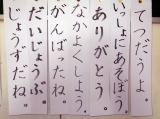 てつだうよ。
いっしょにあそぼう
ありがとう。
なかよくしよう
がんばったね。
だいじょうぶ。
じょうずだね。